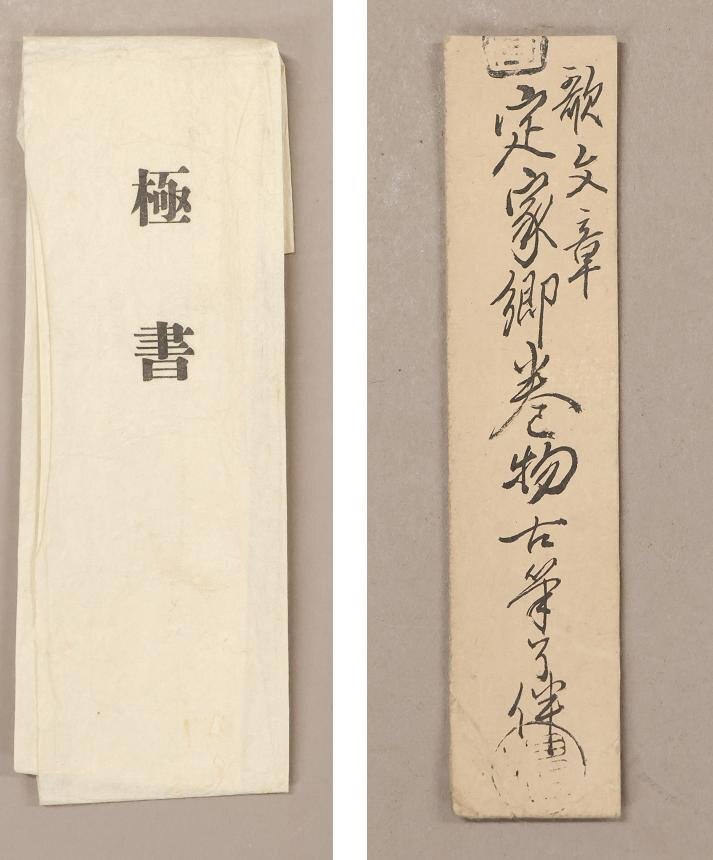 極書
歌文章
定家卿巻物古筆了伴